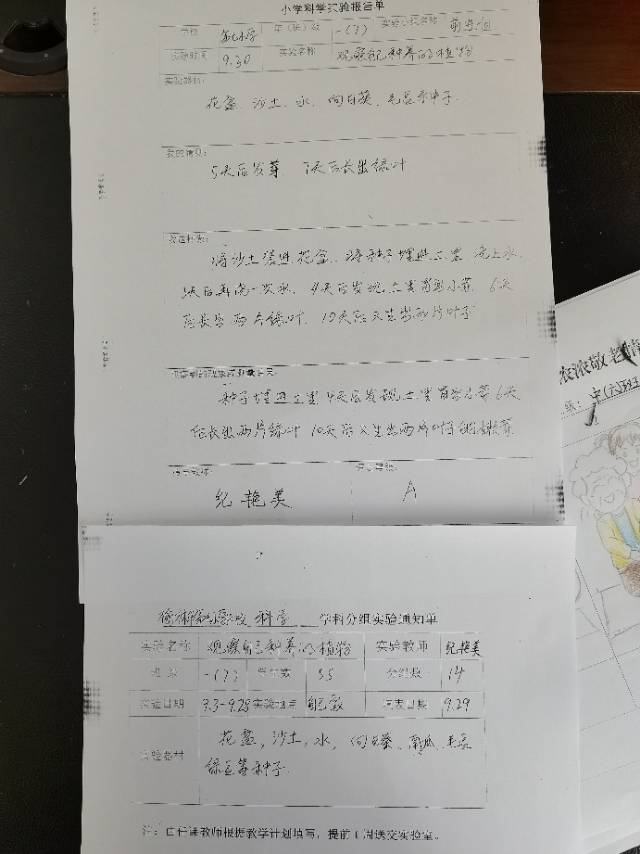 小学科学实验报告单
学校 第七小学 年（班）级 一(7) 实验小组名称
实验时间 9.30 实验名称 观察自己种养的植物
实验器材：
花盆、沙土、水、向日葵、毛豆等种子.
我的猜见：
5天后发芽 7天后长出绿叶
将沙土装进花盆、将种子埋进土里 浇上水、
天后再浇一次水、4天后发现土里有小芽、6天
后长出两片绿叶、10天后又生出两片叶子
种子埋进土里4天后发现土里有小芽6天
后长出两片绿叶 10天后又生出两片叶子
纪艳美 A
浓浓敬老情
科学 学科分组实验通知单
实验名称 观察自己种养的植物 实验教师 纪艳美
班级 一(7) 学生数 55 分组数 14
实验日期 9.3-9.28 实验地点 自己家 填表日期 9.29
实验器材 花盆，沙土，水，向日葵、南瓜、毛豆
绿豆等种子.
注：由任课教师根据教学计划填写，提前1周送交实验室。